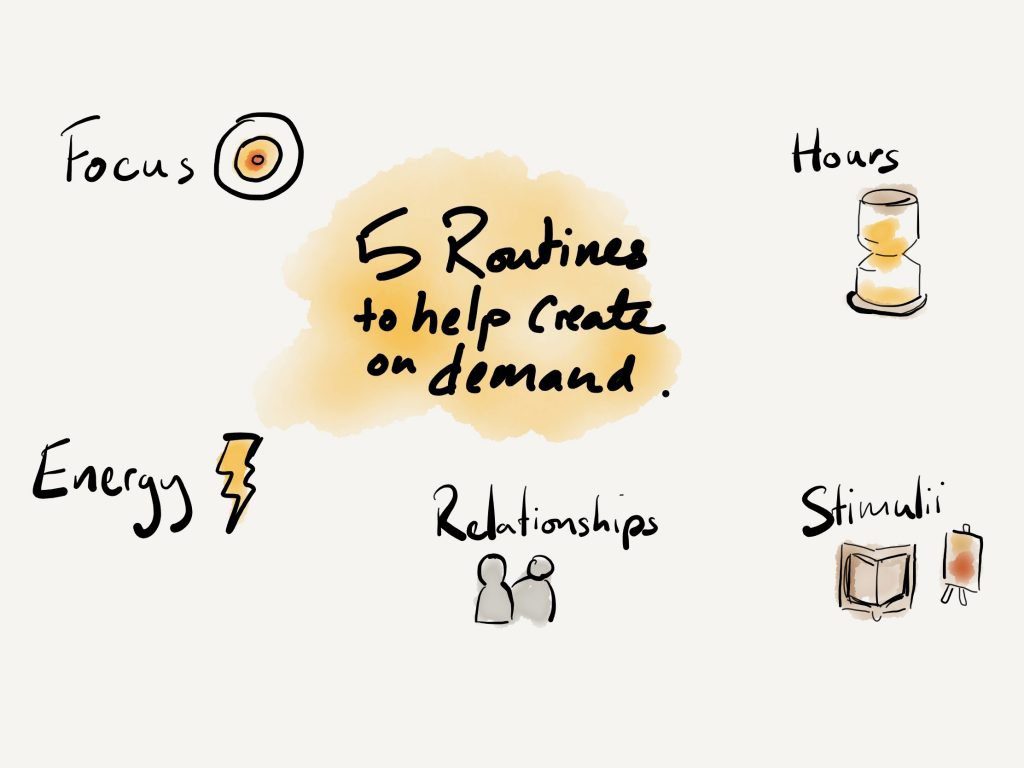 Focus
Hours
5 Routines
to help Create
on demand.
Energy
Relationships
Stimulii